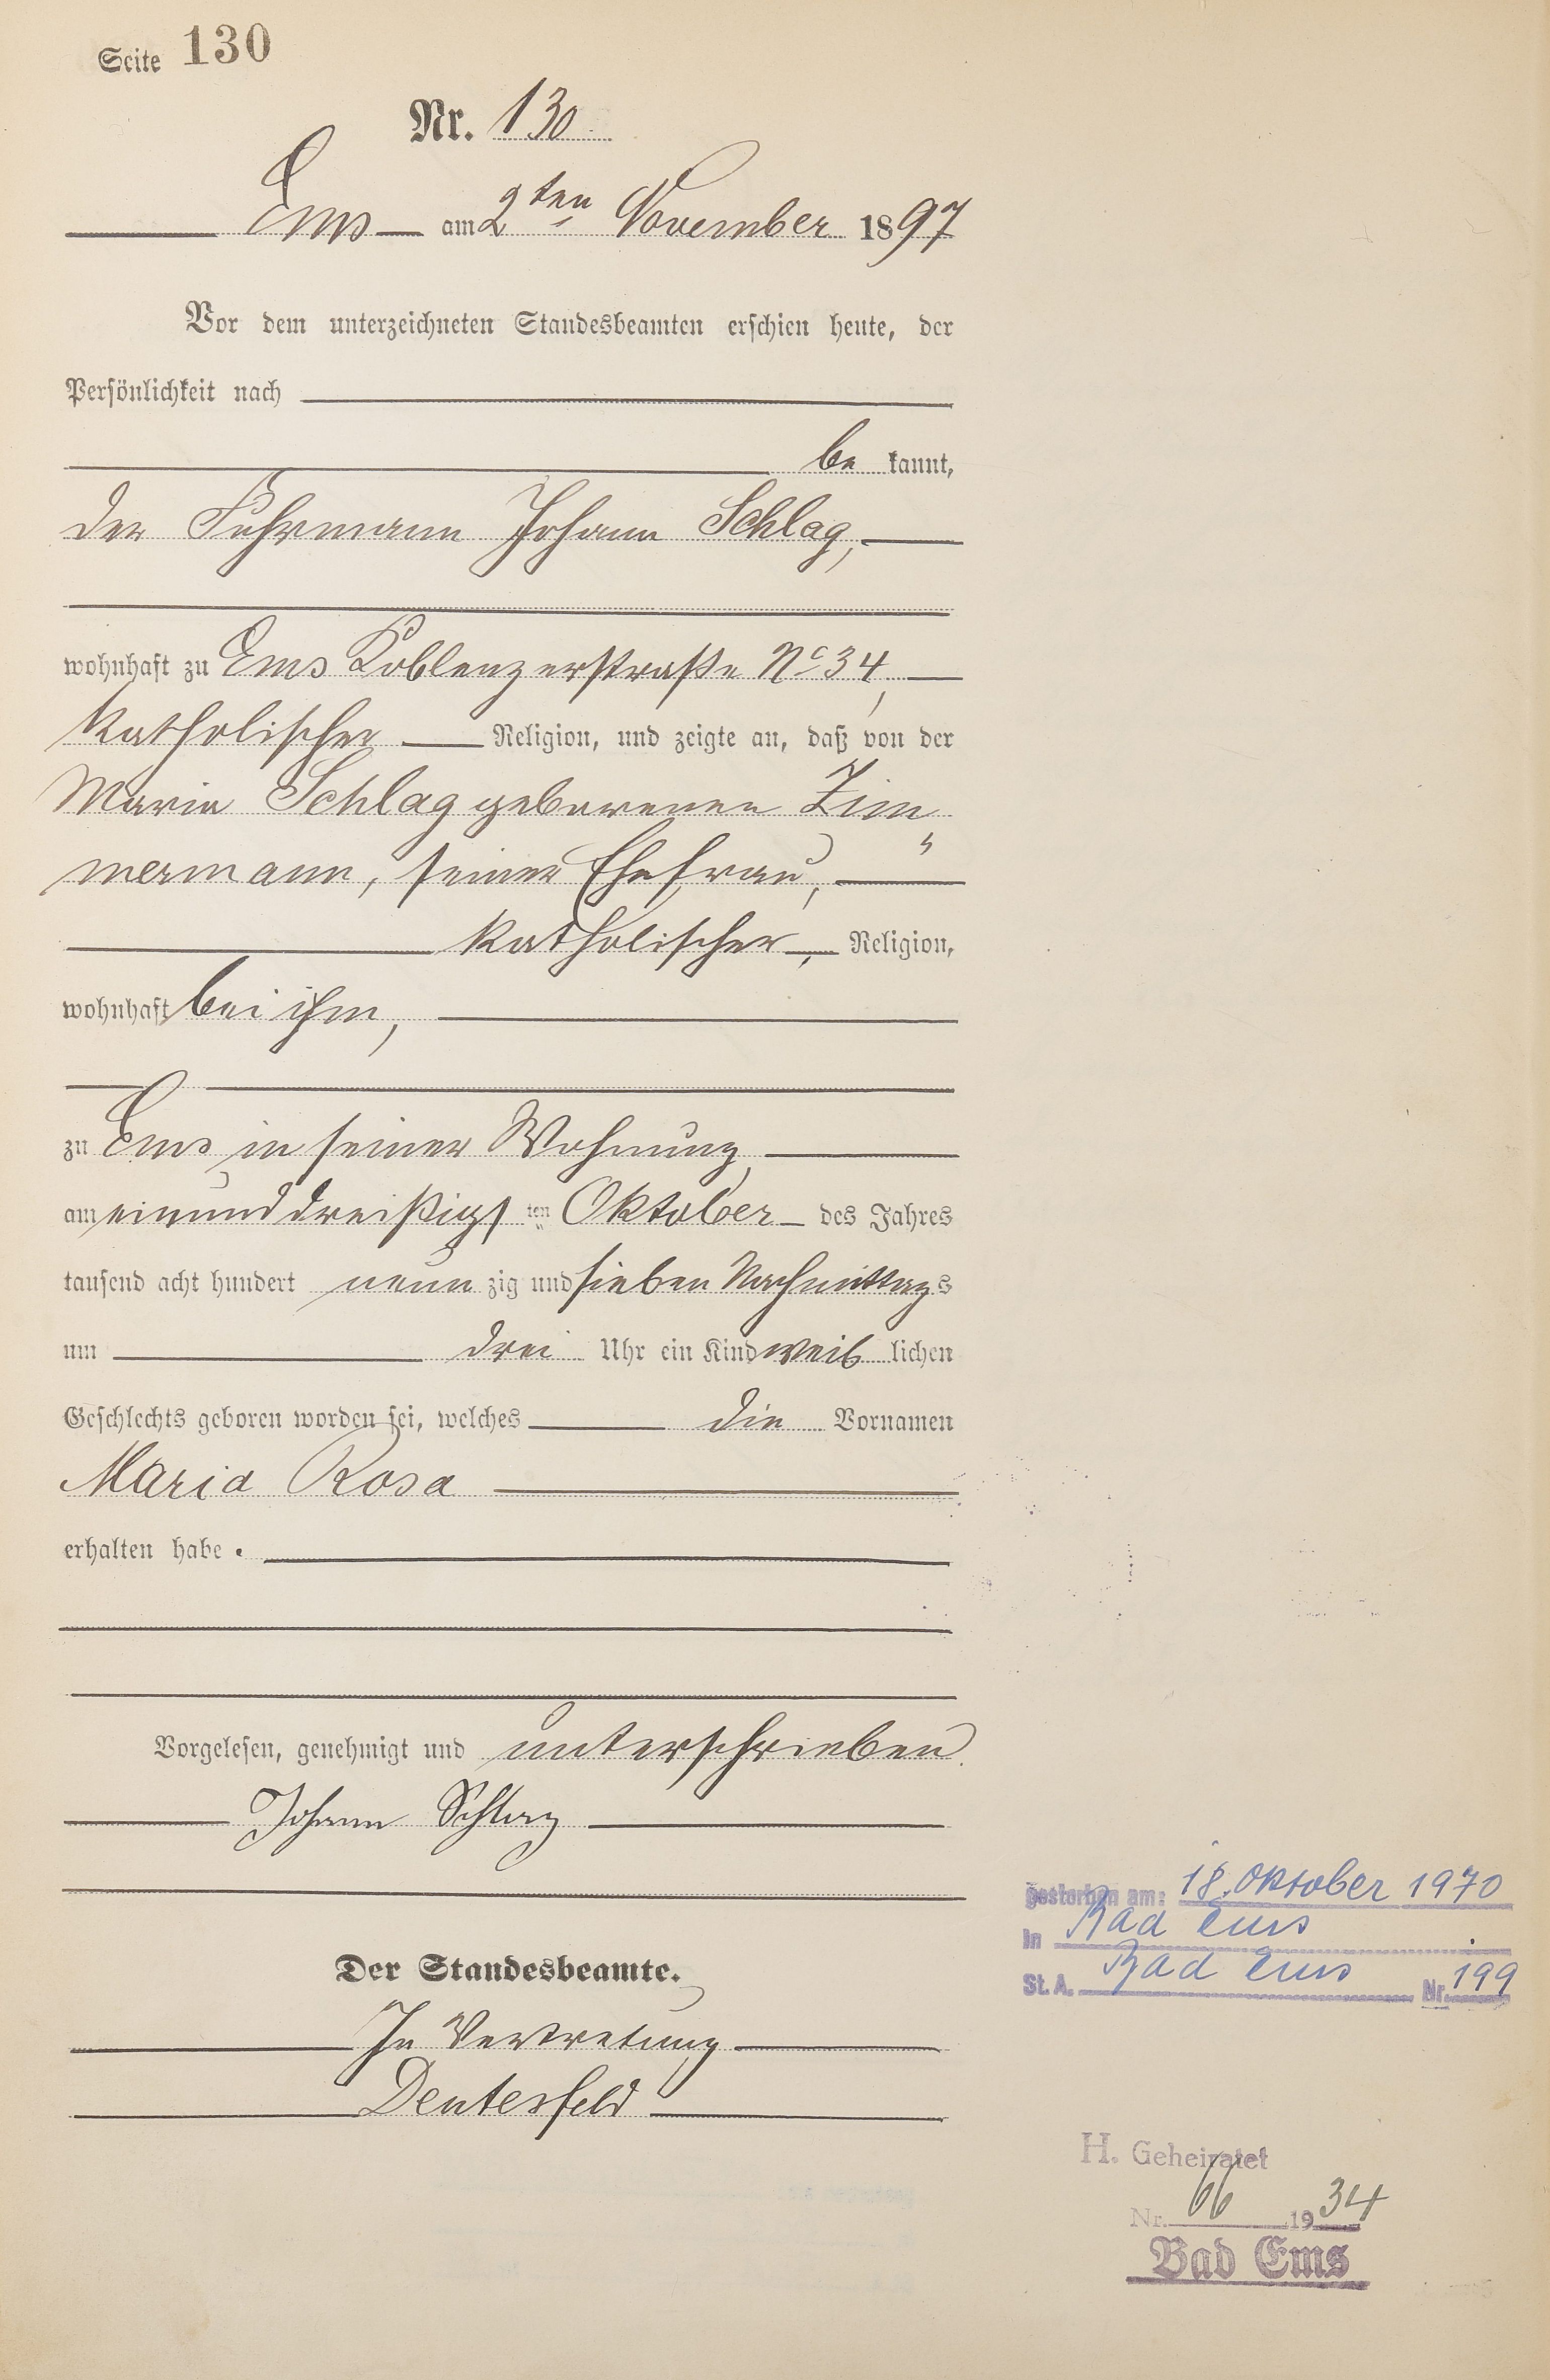 Seite 130
Nr. 130
Ems am 2ten November 1897
Vor dem unterzeichneten Standesbeamten erschien heute, der
Persönlichkeit nach
be kannt,
der Fuhrmann Johann Schlag,
wohnhaft zu Ems Koblenzerstraße No 34,
katholischer Religion, und zeigte an, daß von der
Maria Schlag geborenen Zim„
mermann, seiner Ehefrau,
katholischer, Religion,
wohnhaft bei ihm,
zu Ems in seiner Wohnung,
am einunddreißigs ten Oktober des Jahres
tausend acht hundert neun zig und sieben Nachmittags
um drei Uhr ein Kind weib lichen
Geschlechts geboren worden sei, welches die Vornamen
Maria Rosa
erhalten habe.
Vorgelesen, genehmigt und unterschrieben.
Johann Schlag
Der Standesbeamte.
In Vertretung
Deutesfeld
gestorben am: 18. Oktober 1970
in Bad Ems
St. A. Bad Ems Nr. 199
H. Geheiratet
Nr. 66 1934
Bad Ems